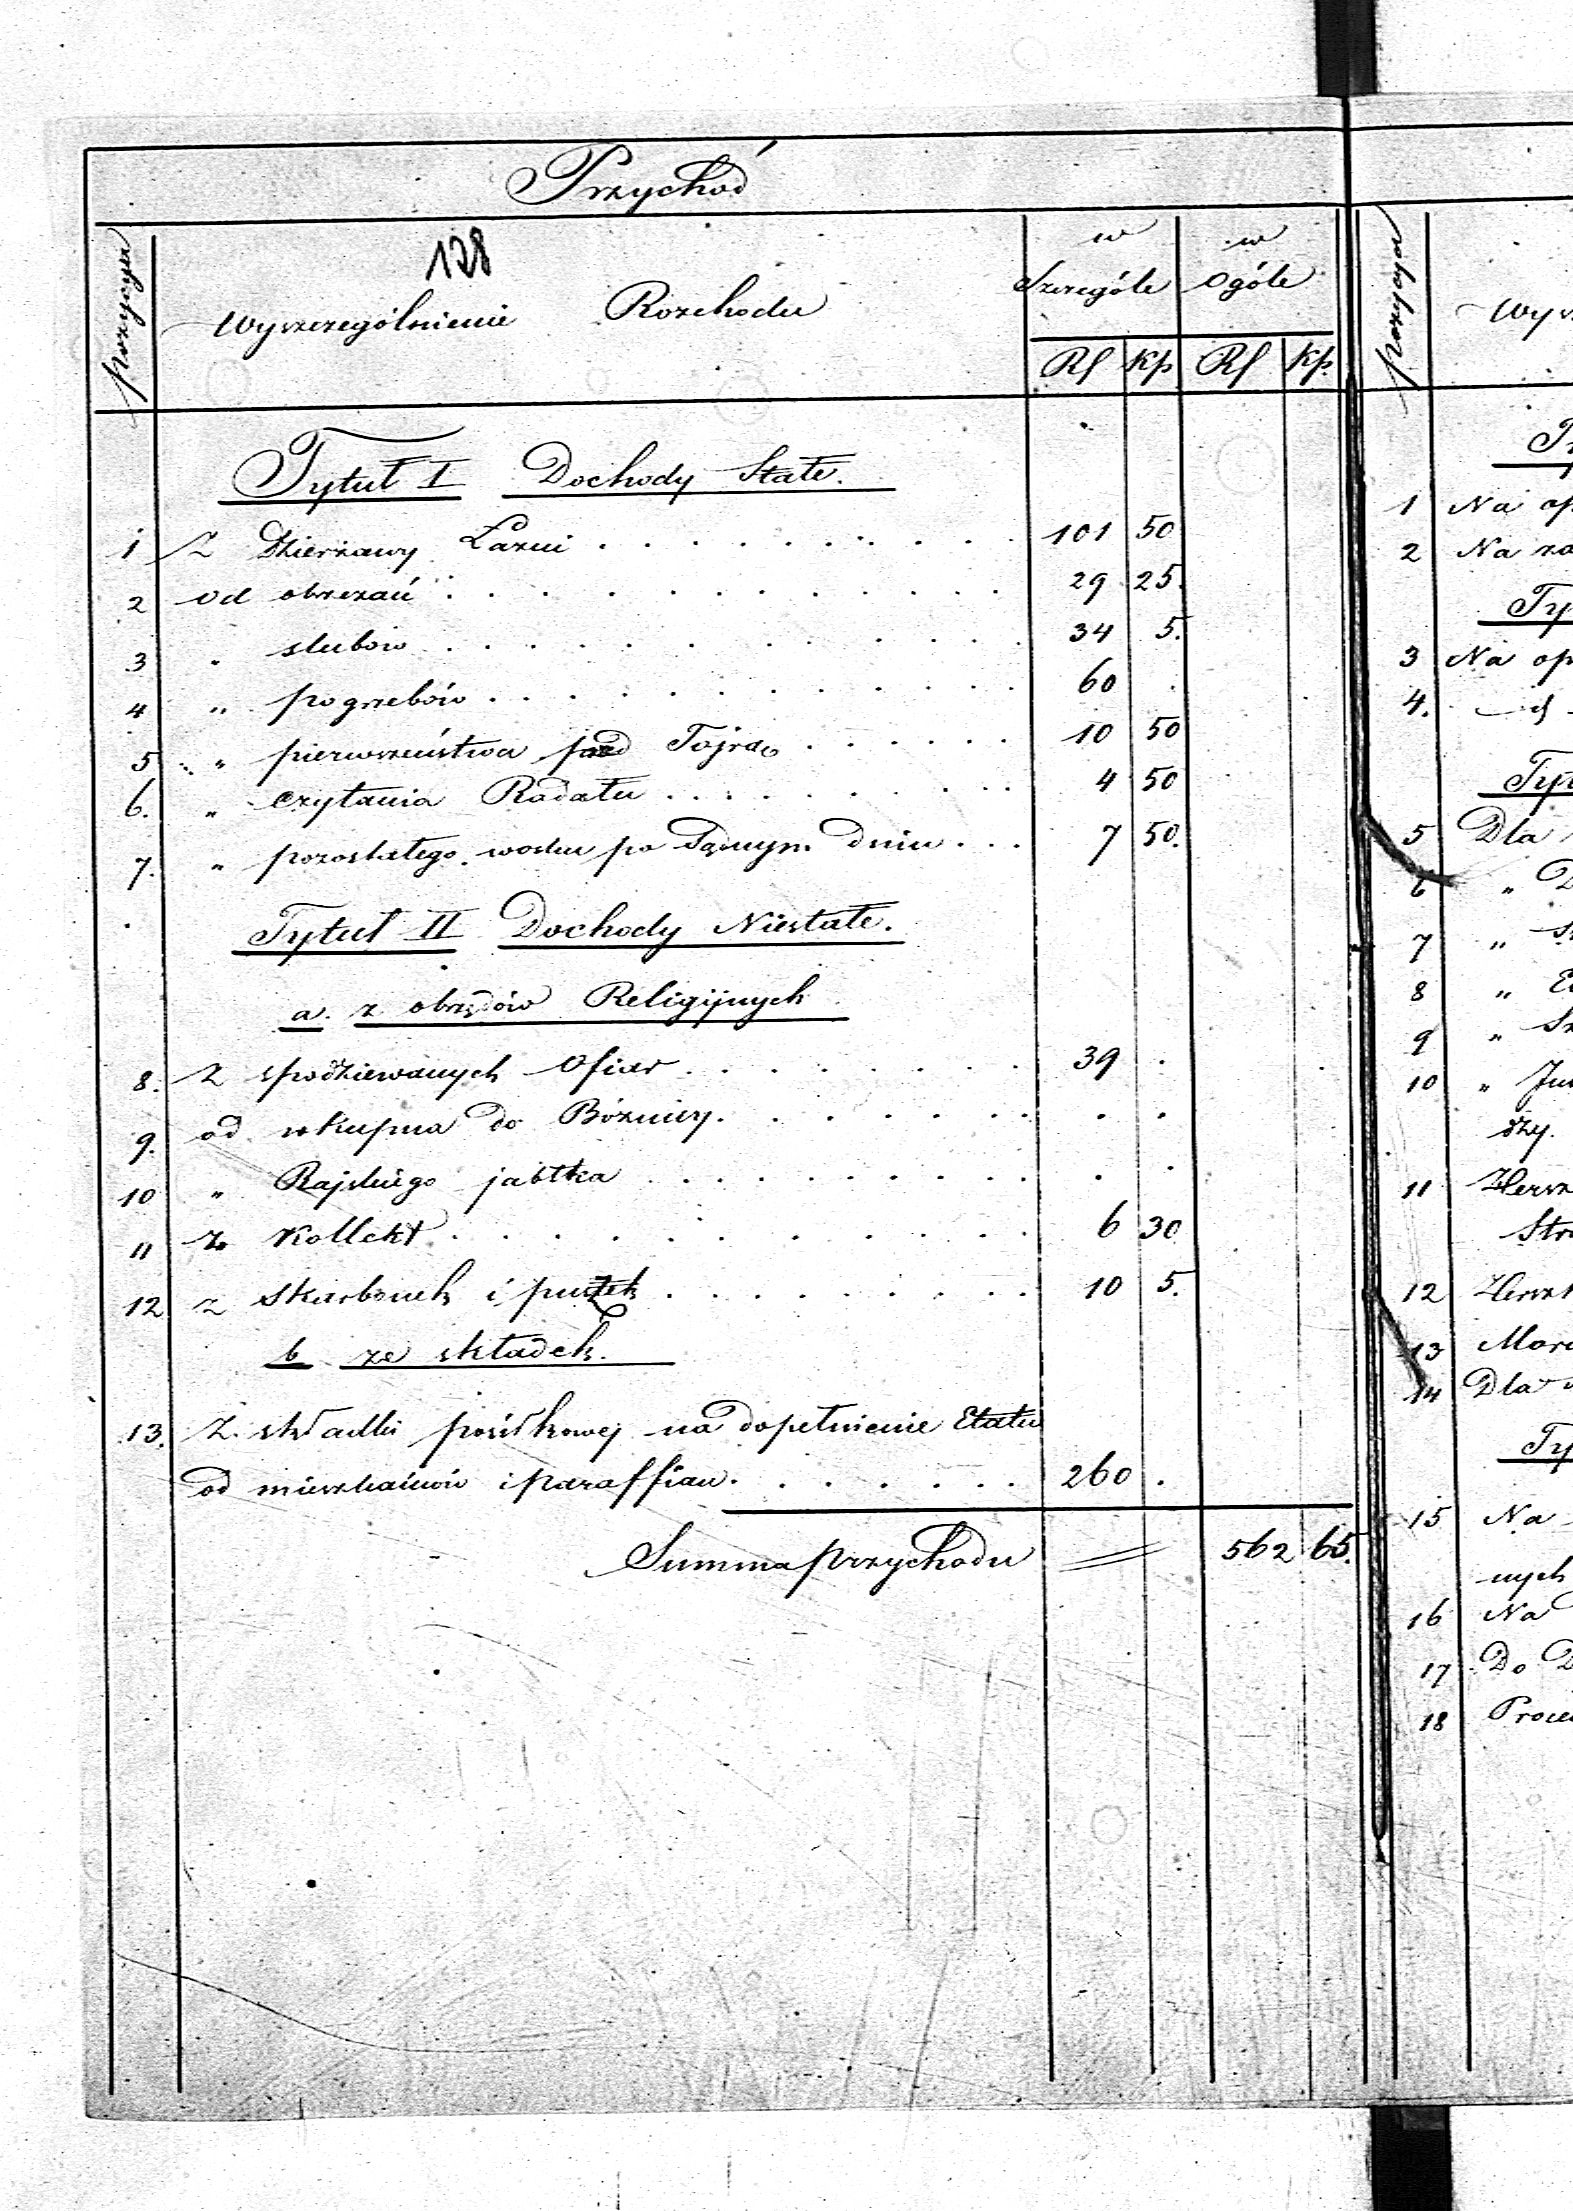 Przychód
128
pozycya
Wyszczególnienie Rozchodu
w Szczególe
w Ogóle
Rs kp Rs kp.
Tytuł I Dochody Stałe.
1 Z Dzierżawy Łazni . . . 101 50
2 od obrzezań . . . 29 25.
3 " slubow . . . 34 5.
4 " pogrzebów . . . 60 .
5 " pierwszeństwa przed Tojrą . . . 10 50
6. " czytania Rodału . . . 4 50
7. " pozostałego wosku po Sądnym dniu . . . 7 50.
Tytuł II Dochody Niestałe.
a. z obrzędów Religijnych
8. Z spodziewanych Ofiar . . . 39 .
9. od wkupna do Bóżnicy. . . . . .
10 " Rajskiego jabłka . . . . .
11 z Kollekt . . . 6 30
12 z skarbonek i puszek . . . 10 5.
b ze składek.
13. Z składki posiłkowej na dopełnienie Etatu
od mieszkańców i paraffian . . . 260 .
Summa przychodu 562 65.
pozycya
1 Na
2 Na
3 Na
4.
5 Dla
6 "
7 "
8 "
9 "
10 "
dzy.
11
12
13
14 Dla
15 Na
nych
16 Na
17 Do
18